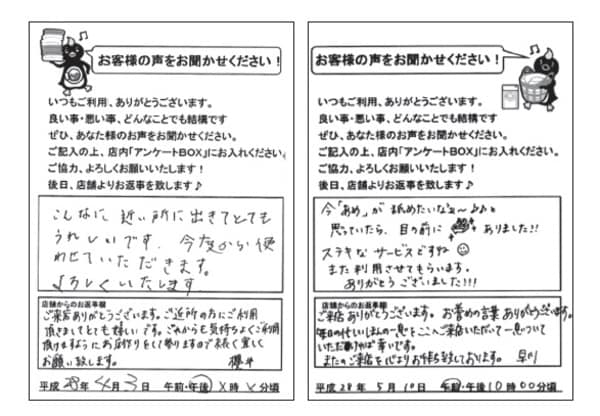 お客様の声をお聞かせください！
いつもご利用、ありがとうございます。
良い事・悪い事、どんなことでも結構です
ぜひ、あなた様のお声をお聞かせください。
ご記入の上、店内「アンケートBOX」にお入れください。
ご協力、よろしくお願いいたします！
後日、店舗よりお返事を致します♪
こんなに近い所に出きてとても
うれしいです。今度から使
わせていただきます。
よろしくいたします
店舗からのお返事欄
ご来店ありがとうございます。ご近所の方にご利用
頂きましてとても嬉しいです。これからも気持ちよくご利用
頂けますようにお店作りをして参りますので末永く宜しく
お願い致します。
平成28年 4月 3日 午前・午後 X時 X分頃
お客様の声をお聞かせください！
いつもご利用、ありがとうございます。
良い事・悪い事、どんなことでも結構です
ぜひ、あなた様のお声をお聞かせください。
ご記入の上、店内「アンケートBOX」にお入れください。
ご協力、よろしくお願いいたします！
後日、店舗よりお返事を致します♪
今「あめ」が舐めたいなぁ～♪♪と
思っていたら、目の前に ありました!!
ステキなサービスですね
また利用させてもらいます。
ありがとうございました!!!
店舗からのお返事欄
ご来店ありがとうございます。お誉めの言葉ありがとうございます。
毎日の忙しい
ご来店いただいて一息ついて
いただければ幸いです。
またのご来店を心よりお待ち致しております。
平成 28年 5月 10日 午前・午後 10時 00分頃